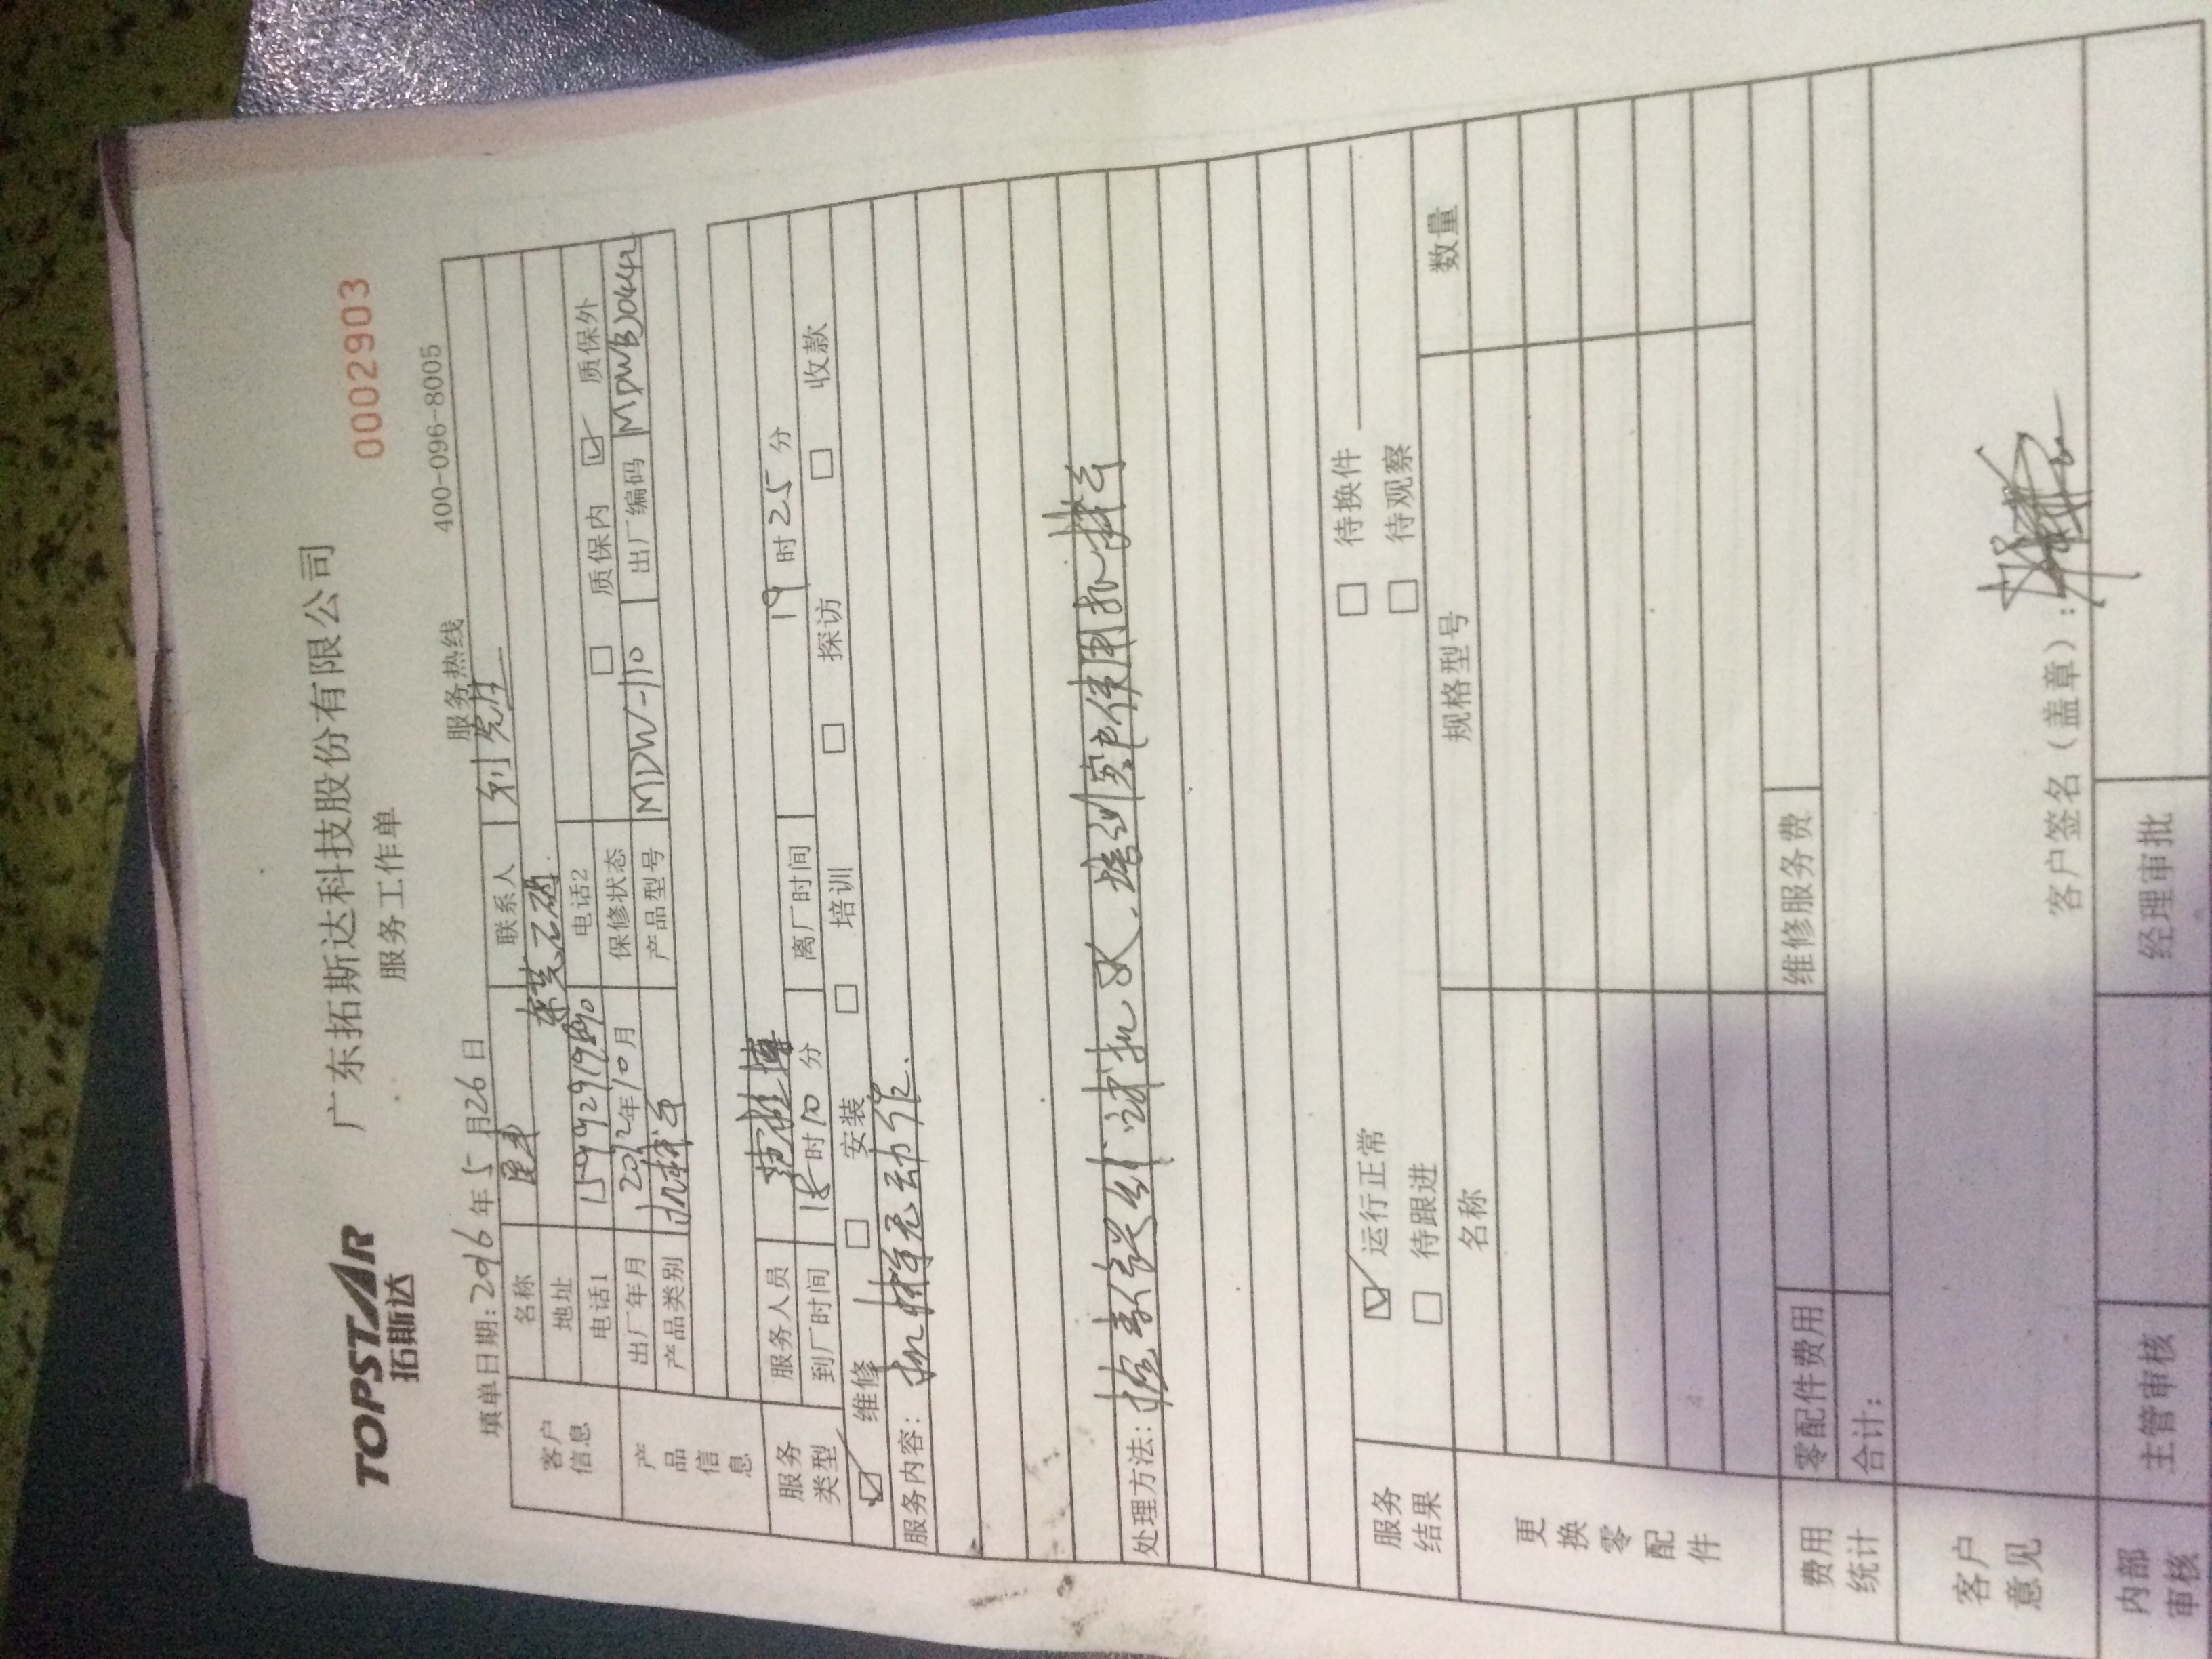 TOPSTAR
拓斯达
广东拓斯达科技股份有限公司
0002903
服务工作单
填单日期:2016年5月26日 服务热线 400-096-8005
客户信息
名称 联系人 刘先生
地址 东莞石碣
电话1 15992919890 电话2
产品信息
出厂年月 2012年10月 保修状态 □ 质保内 ☑ 质保外
产品类别 机械手 产品型号 MDW-110 出厂编码
服务类型
服务人员 范桂博
到厂时间 18时10分 离厂时间 19时25分
☑ 维修 □ 安装 □ 培训 □ 探访 □ 收款
服务内容: 机械手无动作.
处理方法: 检查信号线,试机OK.培训客户使用机械手
服务结果
☑ 运行正常 □ 待换件
□ 待跟进 □ 待观察
更换零配件
名称 规格型号 数量
费用统计
零配件费用 维修服务费
合计:
客户意见
客户签名(盖章):
内部审核
主管审核 经理审批